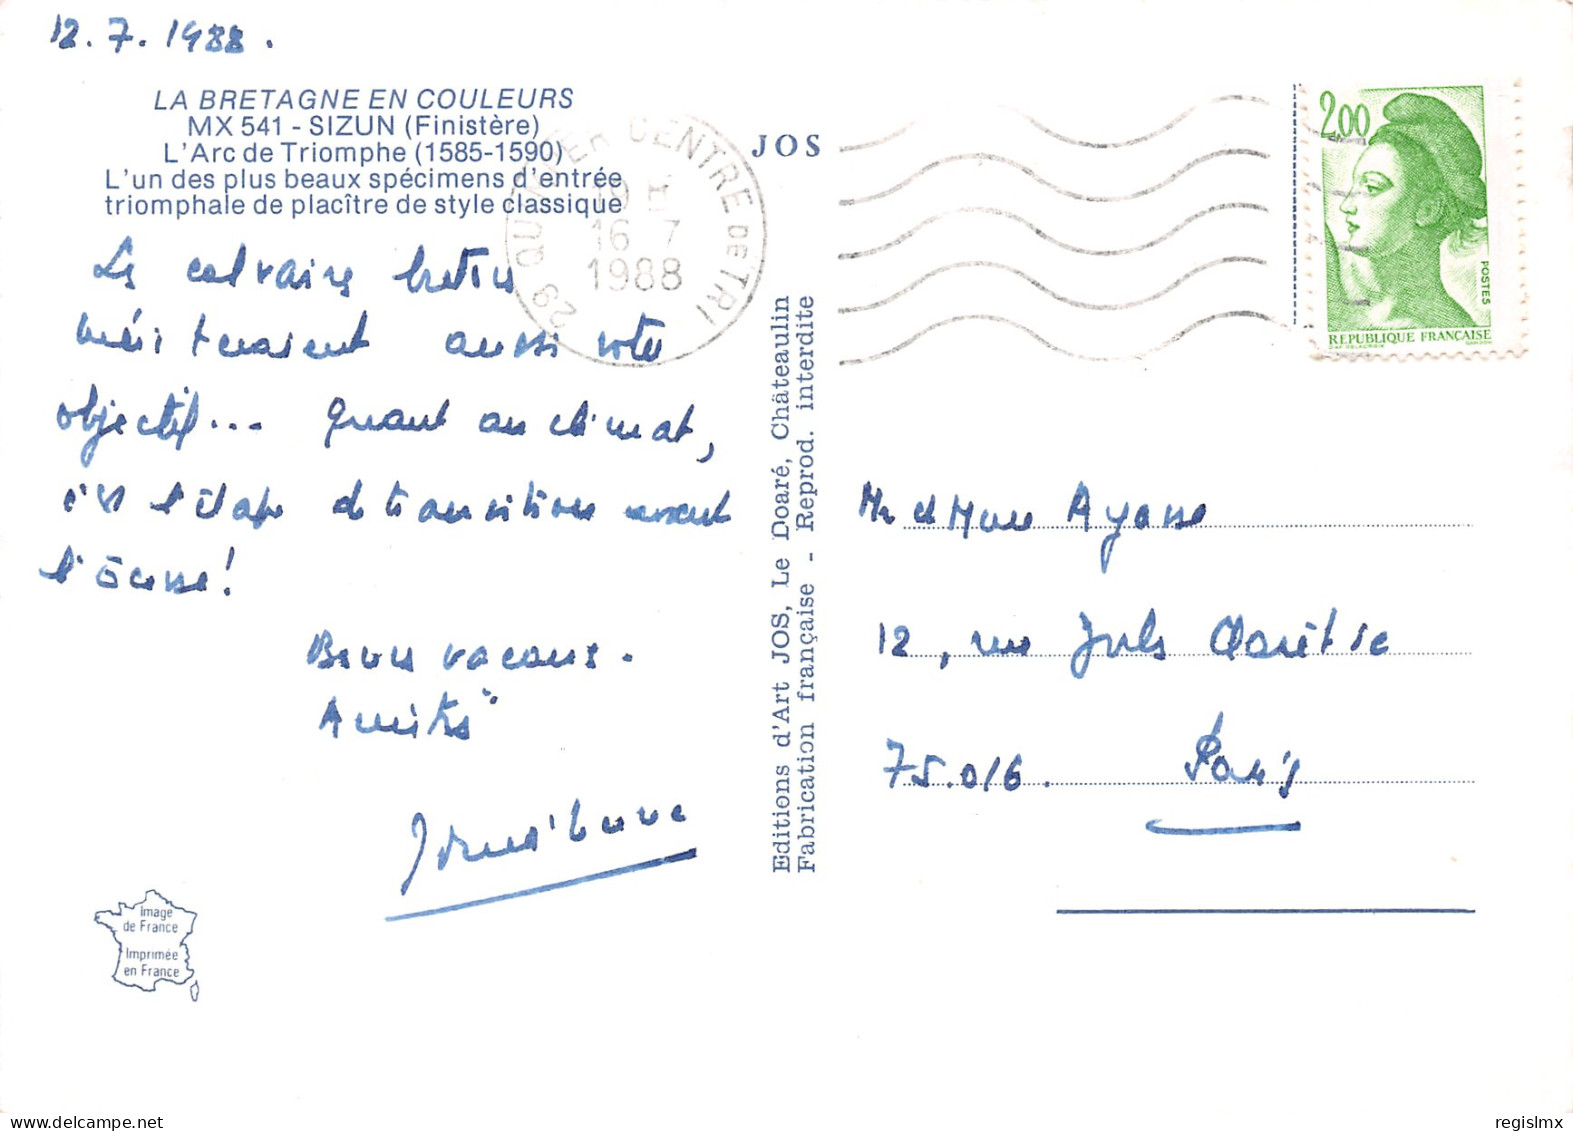 12.7.1988.
LA BRETAGNE EN COULEURS
MX 541 - SIZUN (Finistère)
L'Arc de Triomphe (1585-1590)
L'un des plus beaux spécimens d'entrée
triomphale de placître de style classique
Les calvaires bretons
mériteraient aussi votre
objectif... Quant au climat,
c'est l'étape de transition avant
l'Écosse!
Bonnes vacances.
Amitiés
JOS
Editions d'Art JOS, Le Doaré, Châteaulin
Fabrication française - Reprod. interdite
29 QUIMPER CENTRE DE TRI
16 7
1988
2,00
POSTES
REPUBLIQUE FRANÇAISE
Mr et Mme Ayasse
12, rue Jules Claretie
75.016. Paris
Image
de France
Imprimée
en France
regislmx